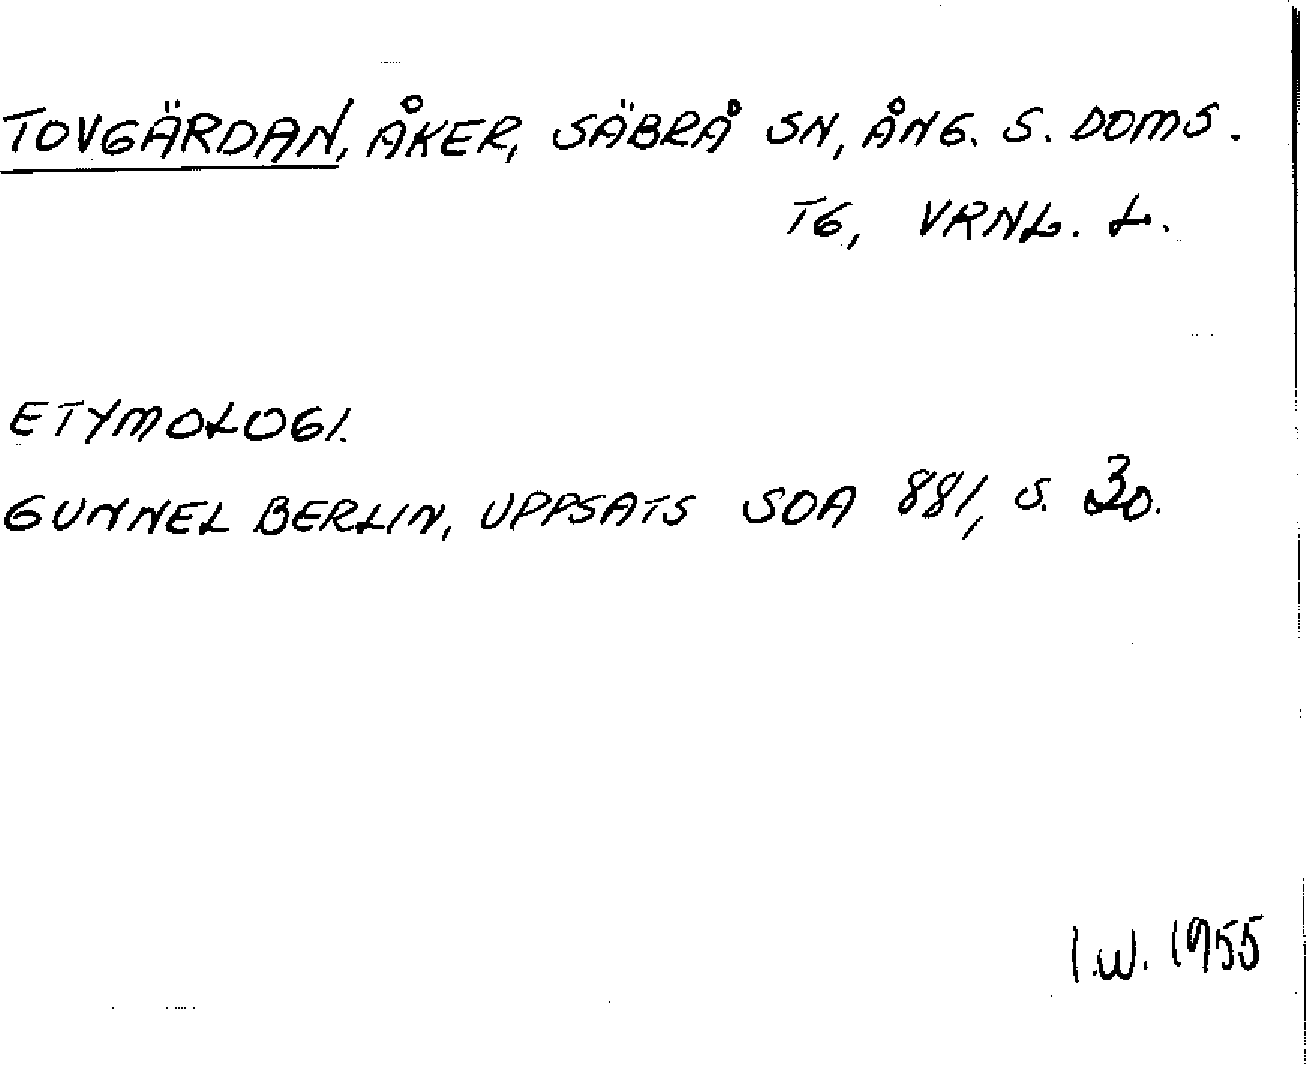 TOVGÄRDAN, ÅKER, SÄBRÅ SN, ÅNG. S. DOMS.
TG, VRNL. L.
ETYMOLOGI.
GUNNEL BERLIN, UPPSATS SOA 881, S. 30.
I.W. 1955